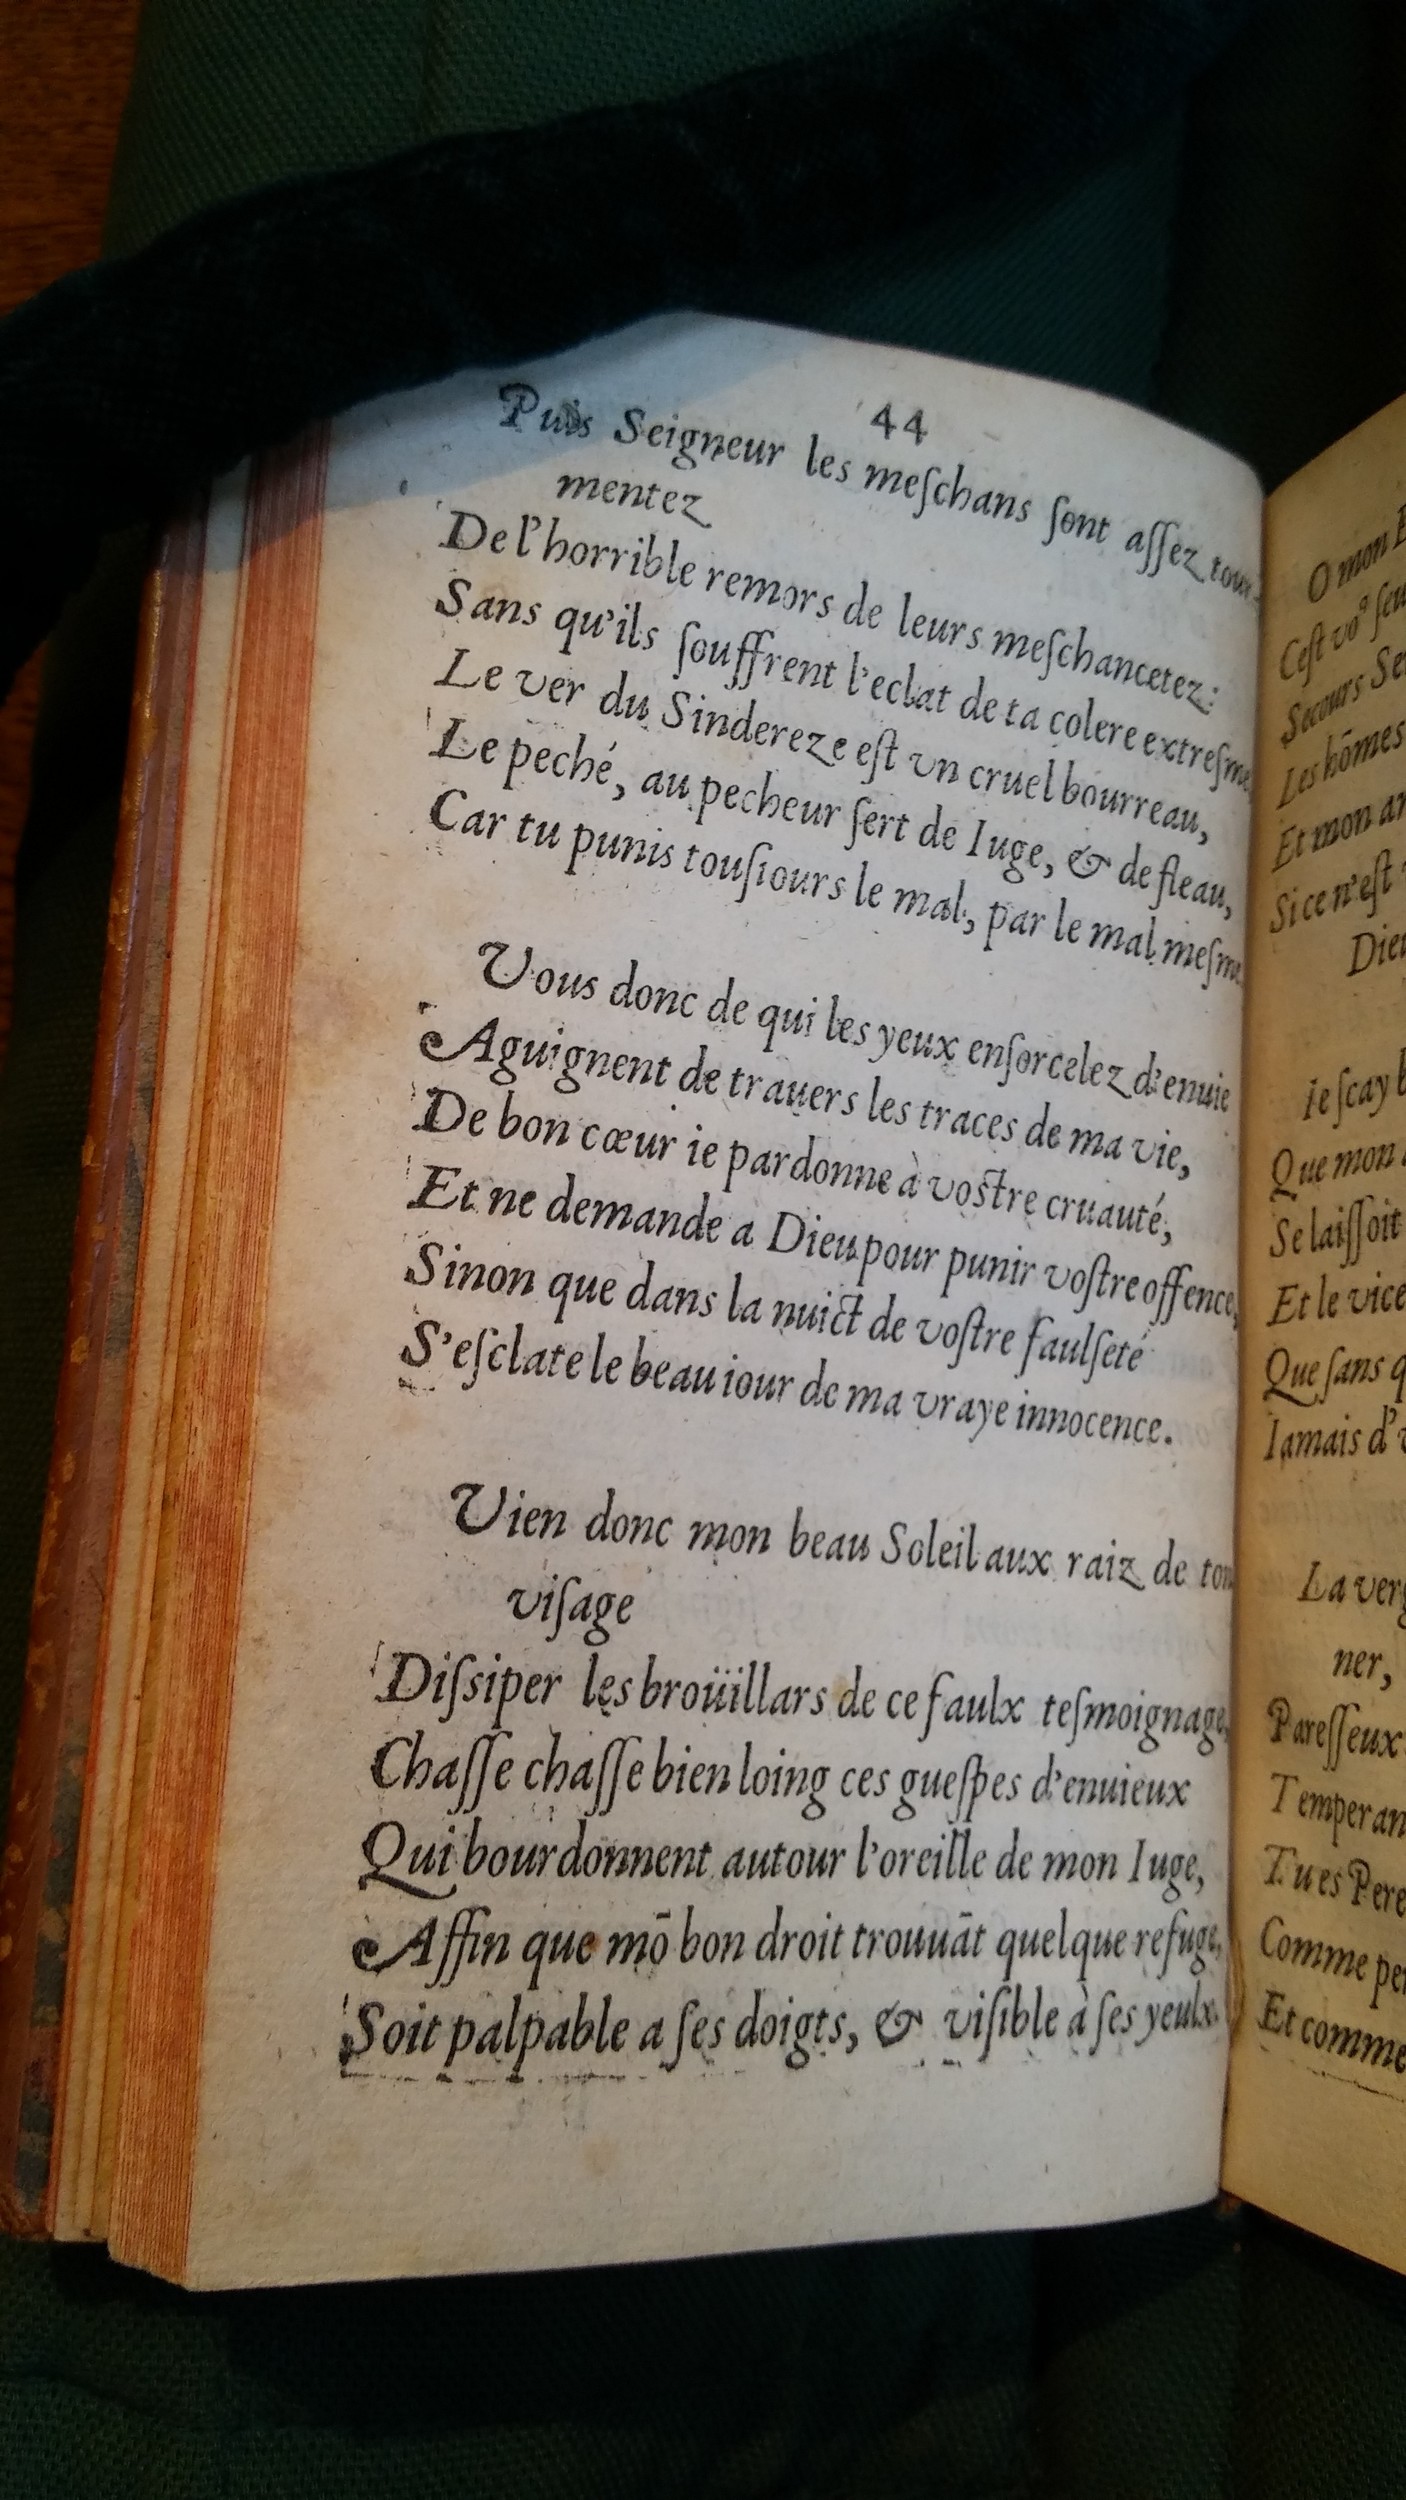 44
Puis Seigneur les meſchans ſont aſſez tour-
mentez
De l'horrible remors de leurs meſchancetez:
Sans qu'ils ſouffrent l'eclat de ta colere extreſme,
Le ver du Sindereze eſt vn cruel bourreau,
Le peché, au pecheur ſert de Iuge, & de fleau,
Car tu punis touſiours le mal, par le mal meſme
Vous donc de qui les yeux enſorcelez d'enuie
Aguignent de trauers les traces de ma vie,
De bon cœur ie pardonne à voſtre cruauté,
Et ne demande a Dieu pour punir voſtre offence,
Sinon que dans la nuict de voſtre faulſeté
S'eſclate le beau iour de ma vraye innocence.
Vien donc mon beau Soleil aux raiz de ton
viſage
Diſsiper les broüillars de ce faulx teſmoignage,
Chaſſe chaſſe bien loing ces gueſpes d'enuieux
Qui bourdonnent autour l'oreille de mon Iuge,
Affin que mō bon droit trouuāt quelque refuge,
Soit palpable a ſes doigts, & viſible à ſes yeulx.
O mon
Ceſt vo⁹
Secours
Les hōmes
Et mon
Si ce n'eſt
Ie ſcay
Que mon
Se laiſſoit
Et le vice
Que ſans
Iamais
La
ner,
Pareſſeux
Tu es Pere
Comme
Et comme